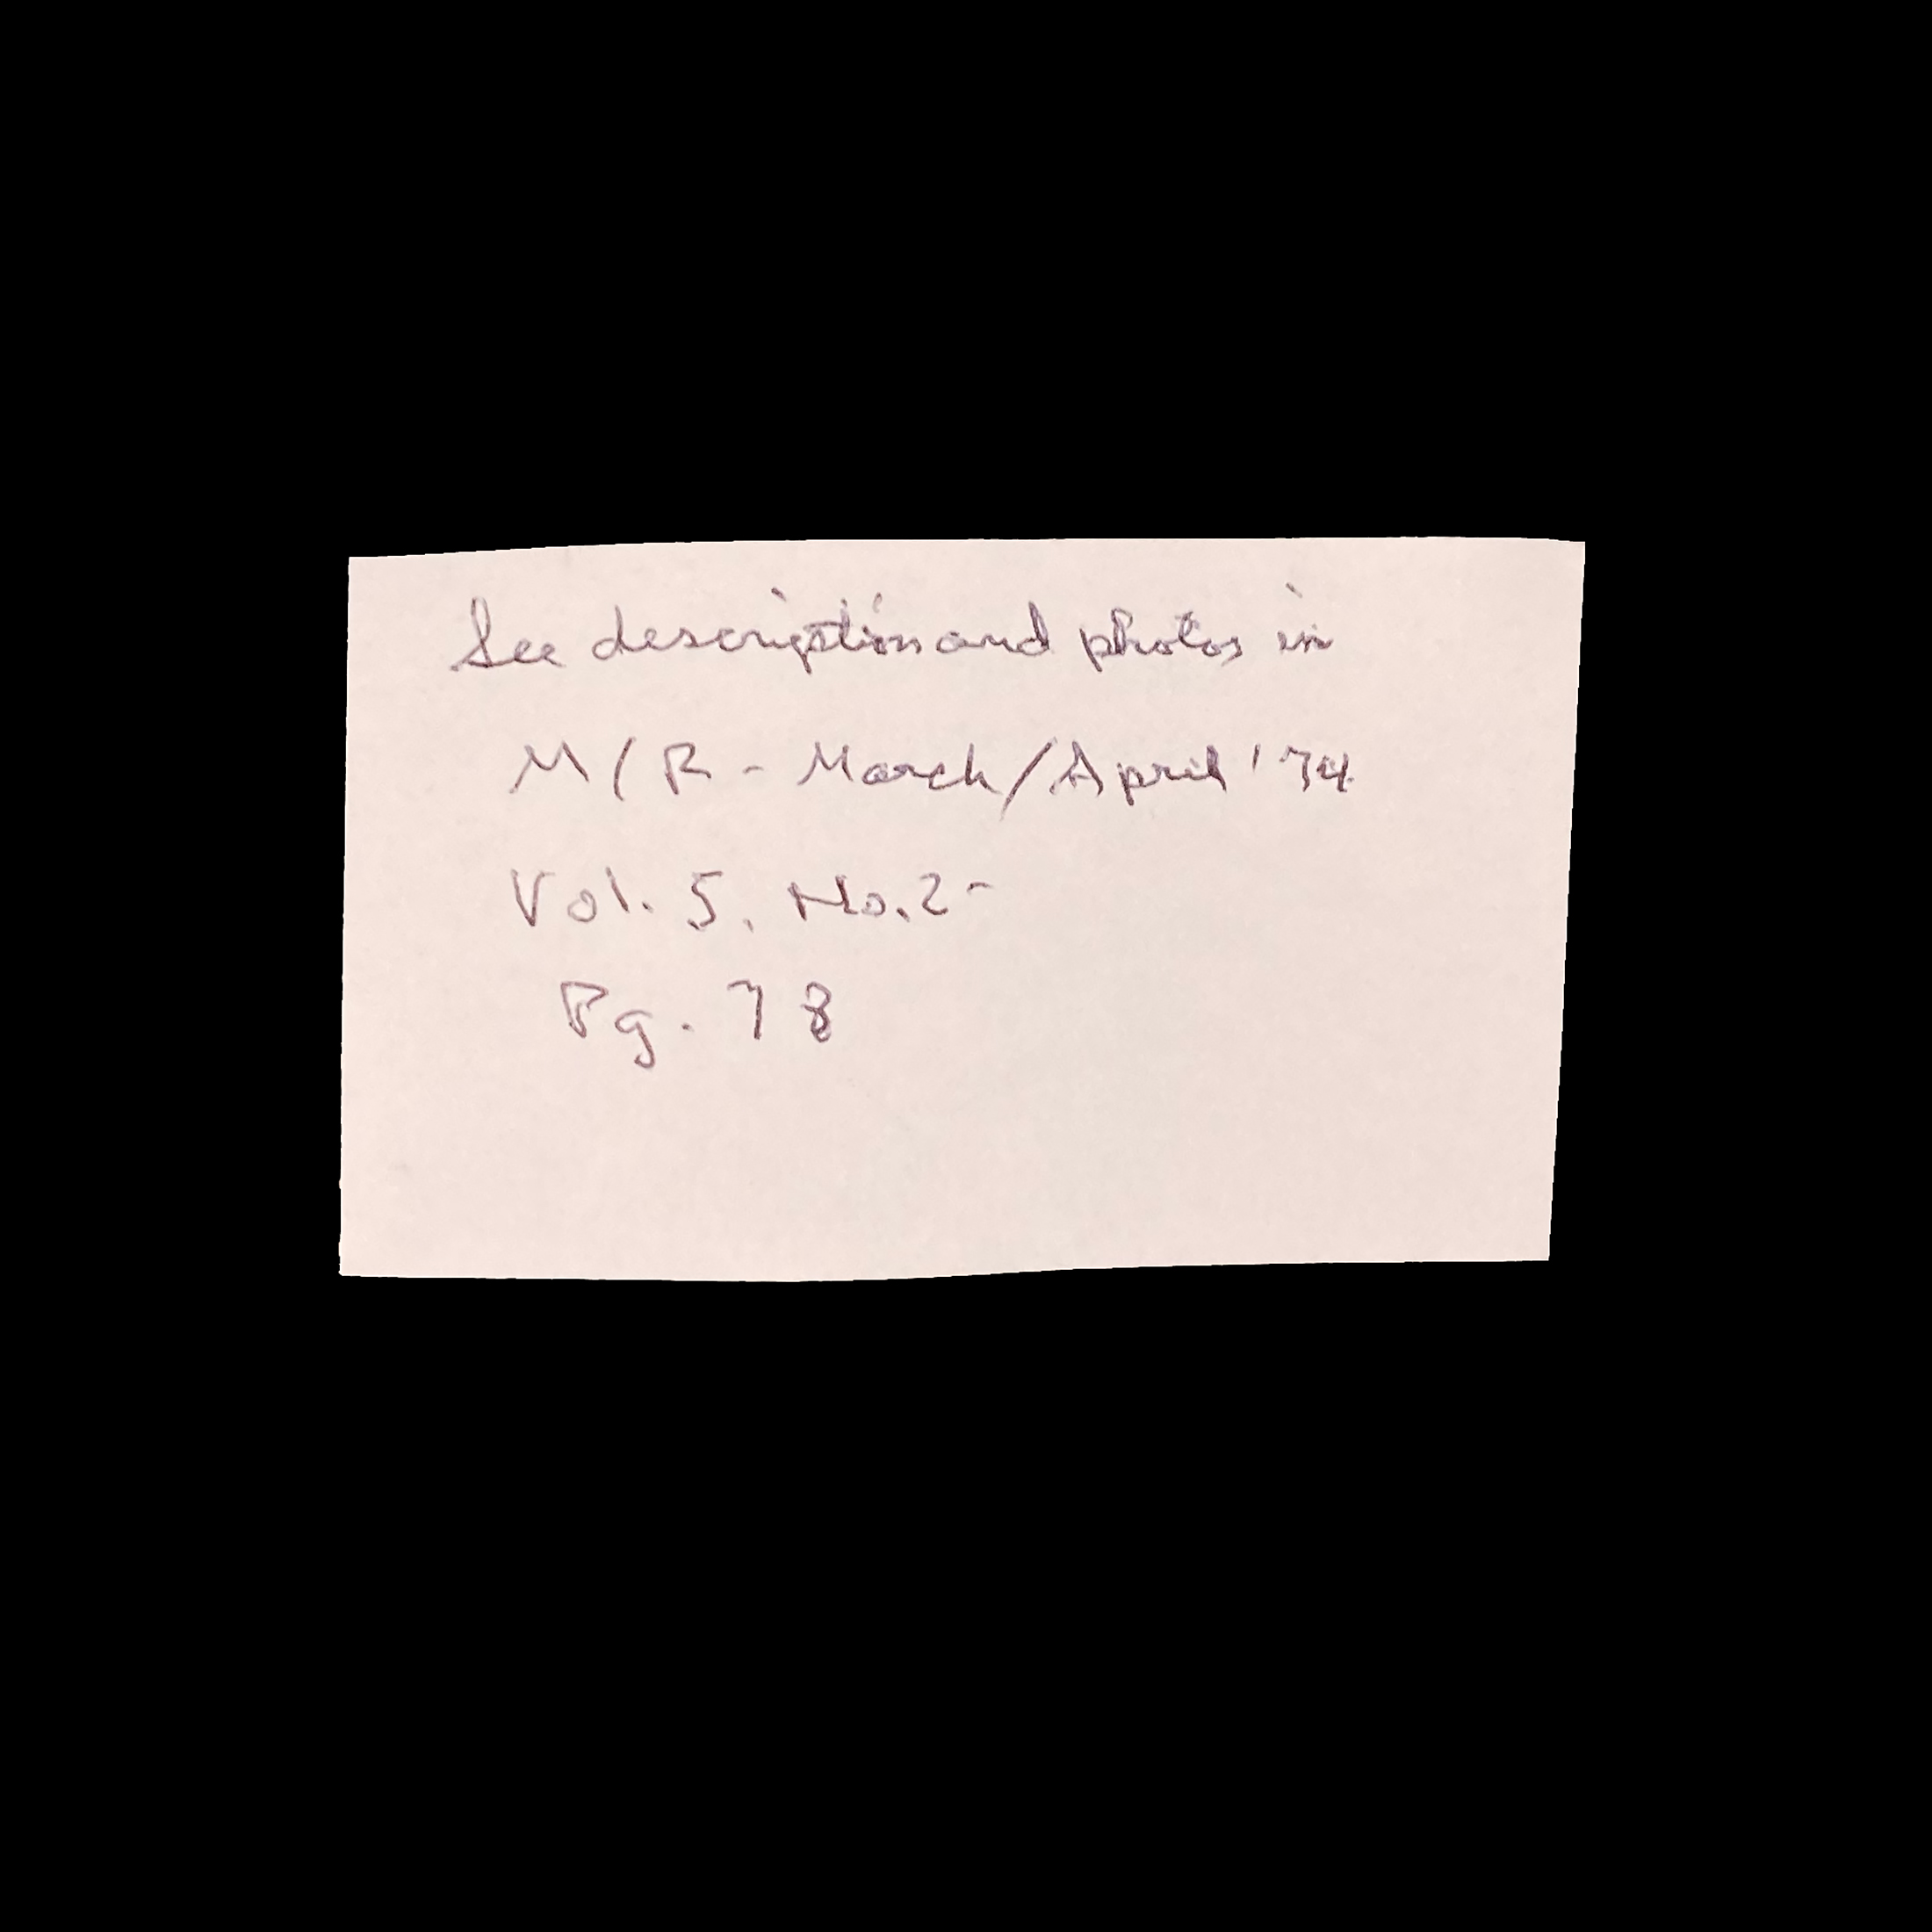 See description and photos in
M/R - March/April '74
Vol. 5, No. 2 -
Pg. 78